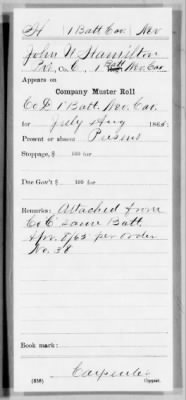 H 1 Batt Cav. Nev
John N. Hamilton
Pvt, Co. C, 1 Batt. Nev. Cav.
Appears on
Company Muster Roll
Co D 1" Batt. Nev. Cav.
for July Aug 1865
Present or absent Present
Stoppage, $ 100 for
Due Gov't $ 100 for
Remarks: Attached from
Co C same Batt
Apr. 8/65 per order
No. 38
Book mark:
Carpenter
(358) Copyist.